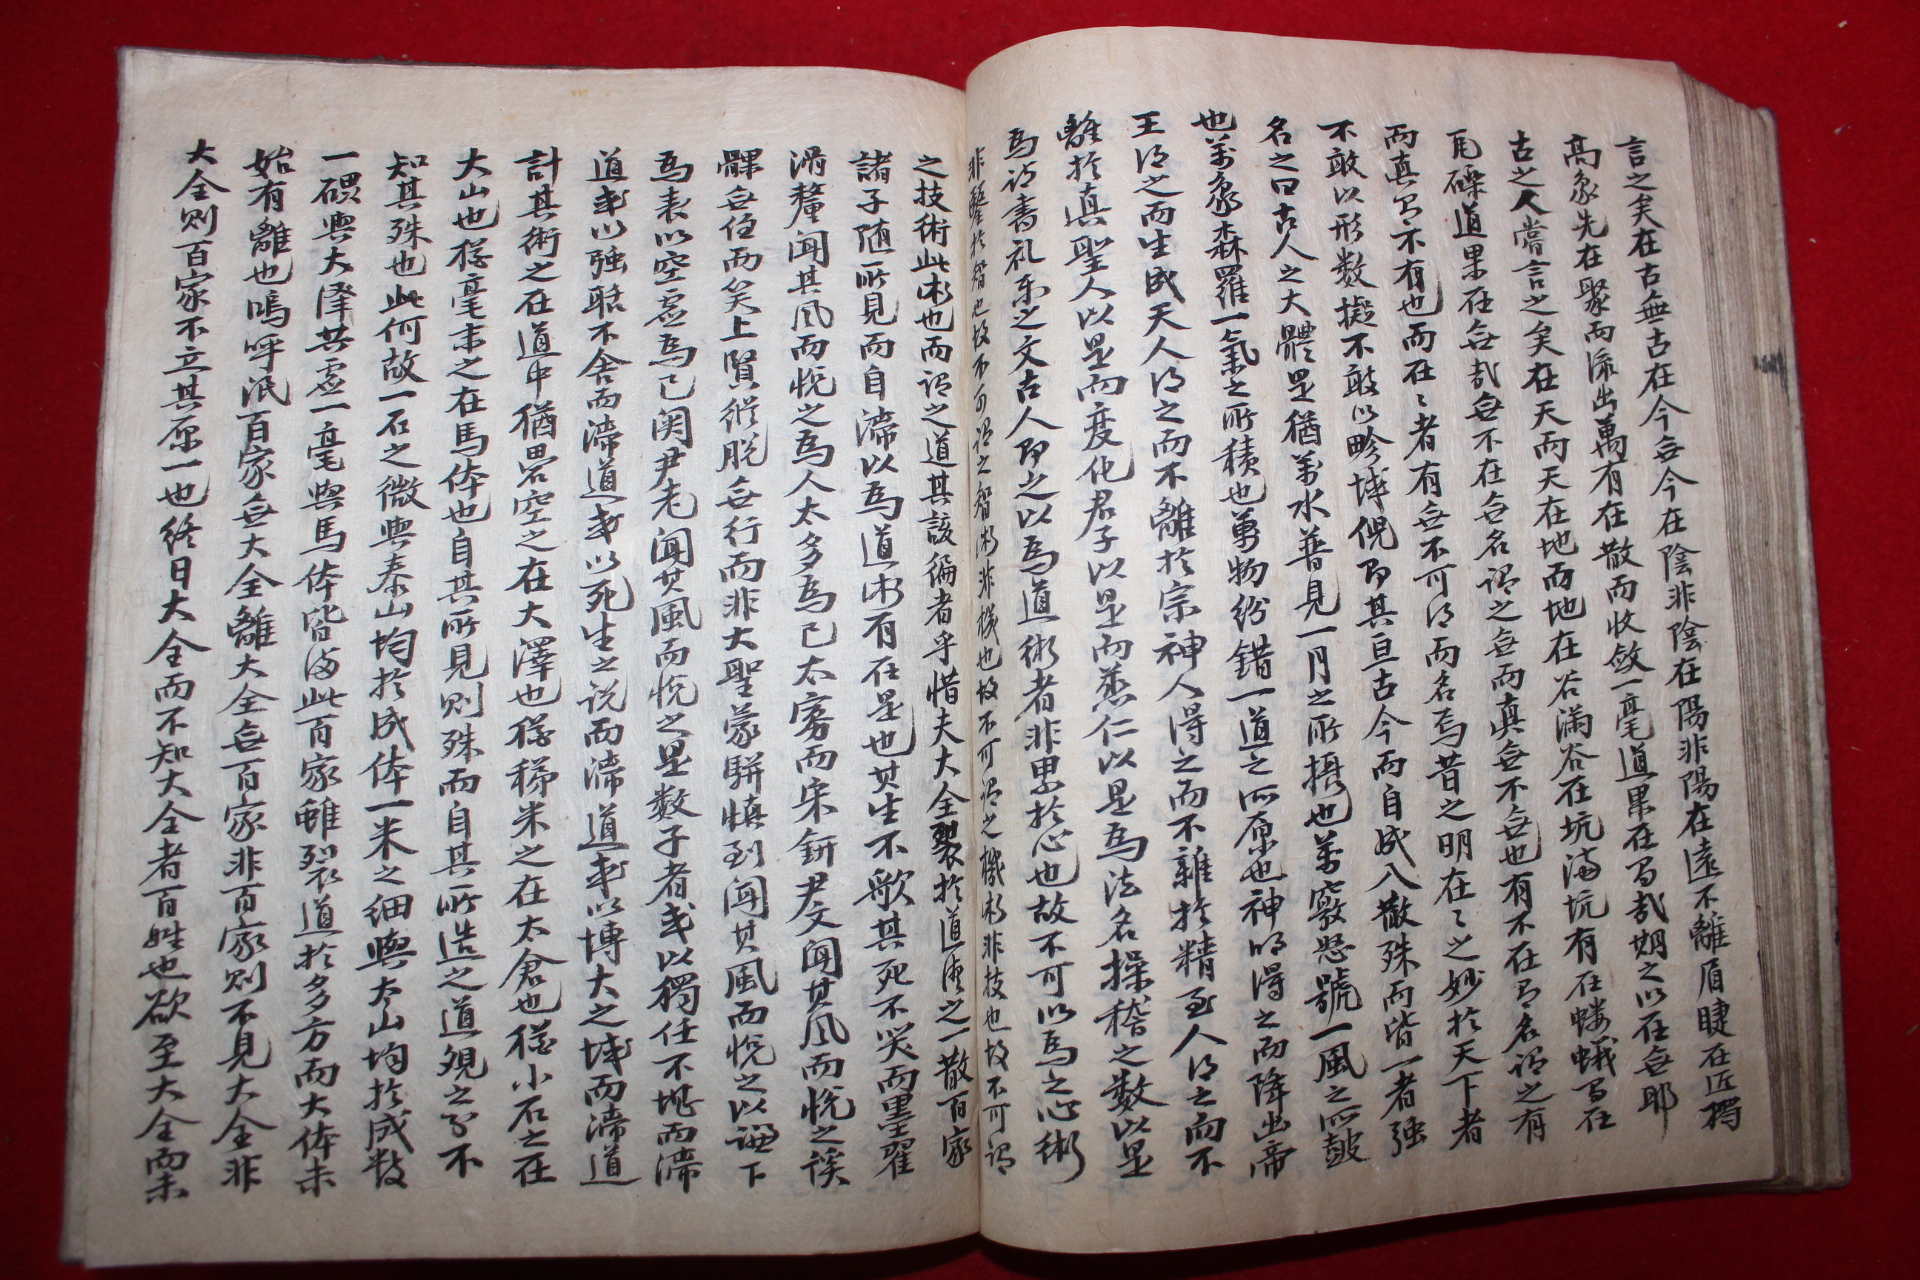 言之矣在古無古在今無今在陰非陰在陽非陽在遠不離眉睫在近獨
高象先在聚而流出萬有在散而收斂一毫道果在有哉烟之以在無耶
古之人嘗言之矣在天而天在地而地在谷滿谷在坑滿坑有在螻蟻有在
瓦礫道果在無哉無不在無名謂之無而真無不無也有不在有名謂之有
而真有不有也而在々者有無不可得而名焉昔之明在々之妙於天下者
不敢以形数擬不敢以畛域倪即其亘古今而自成八散殊而皆一者強
名之曰古人之大體是猶萬水普見一月之所攝也萬竅怒號一風之所鼓
也萬象森羅一氣之所積也萬物紛錯一道之所原也神明得之而降出帝
王得之而生成天人得之而不離於宗神人得之而不離於精至人得之而不
離於真聖人以是而變化君子以是而慈仁以是為法名操稽之数以是
為詩書礼樂之文古人即之以為道術者非思於心也故不可以為之心術
非鑿於智也故不可謂之智術非機也故不可謂之機術非技也故不可謂
之技術此術也而謂之道其該徧者乎惜夫大全裂於道術之一散百家
諸子随所見而自滯以為道術有在是也其生不歌其死不哭而墨翟
滑釐聞其風而悦之為人太多為己太寡而宋鈃尹文聞其風而悦之謑
髁無任而笑上賢縱脫無行而非大聖蒙駢慎到聞其風而悦之以謙下
為表以空虛為己関尹老聞其風而悦之是数子者或以獨任不堪而滯
道或以強聒不舍而滯道或以死生之説而滯道或以博大之域而滯道
計其術之在道中猶畧空之在大澤也猶稊米之在太倉也猶小石之在
大山也猶毫末之在馬体也自其所見則殊而自其所造之道觀之有不
知其殊也此何故一石之微與泰山均於成体一米之細與大山均於成数
一礧與大澤共虛一毫與馬体皆備此百家雖裂道於多方而大体未
始有離也嗚呼泯百家無大全離大全無百家非百家則不見大全非
大全則百家不立其原一也終日大全而不知大全者百姓也欲至大全而未